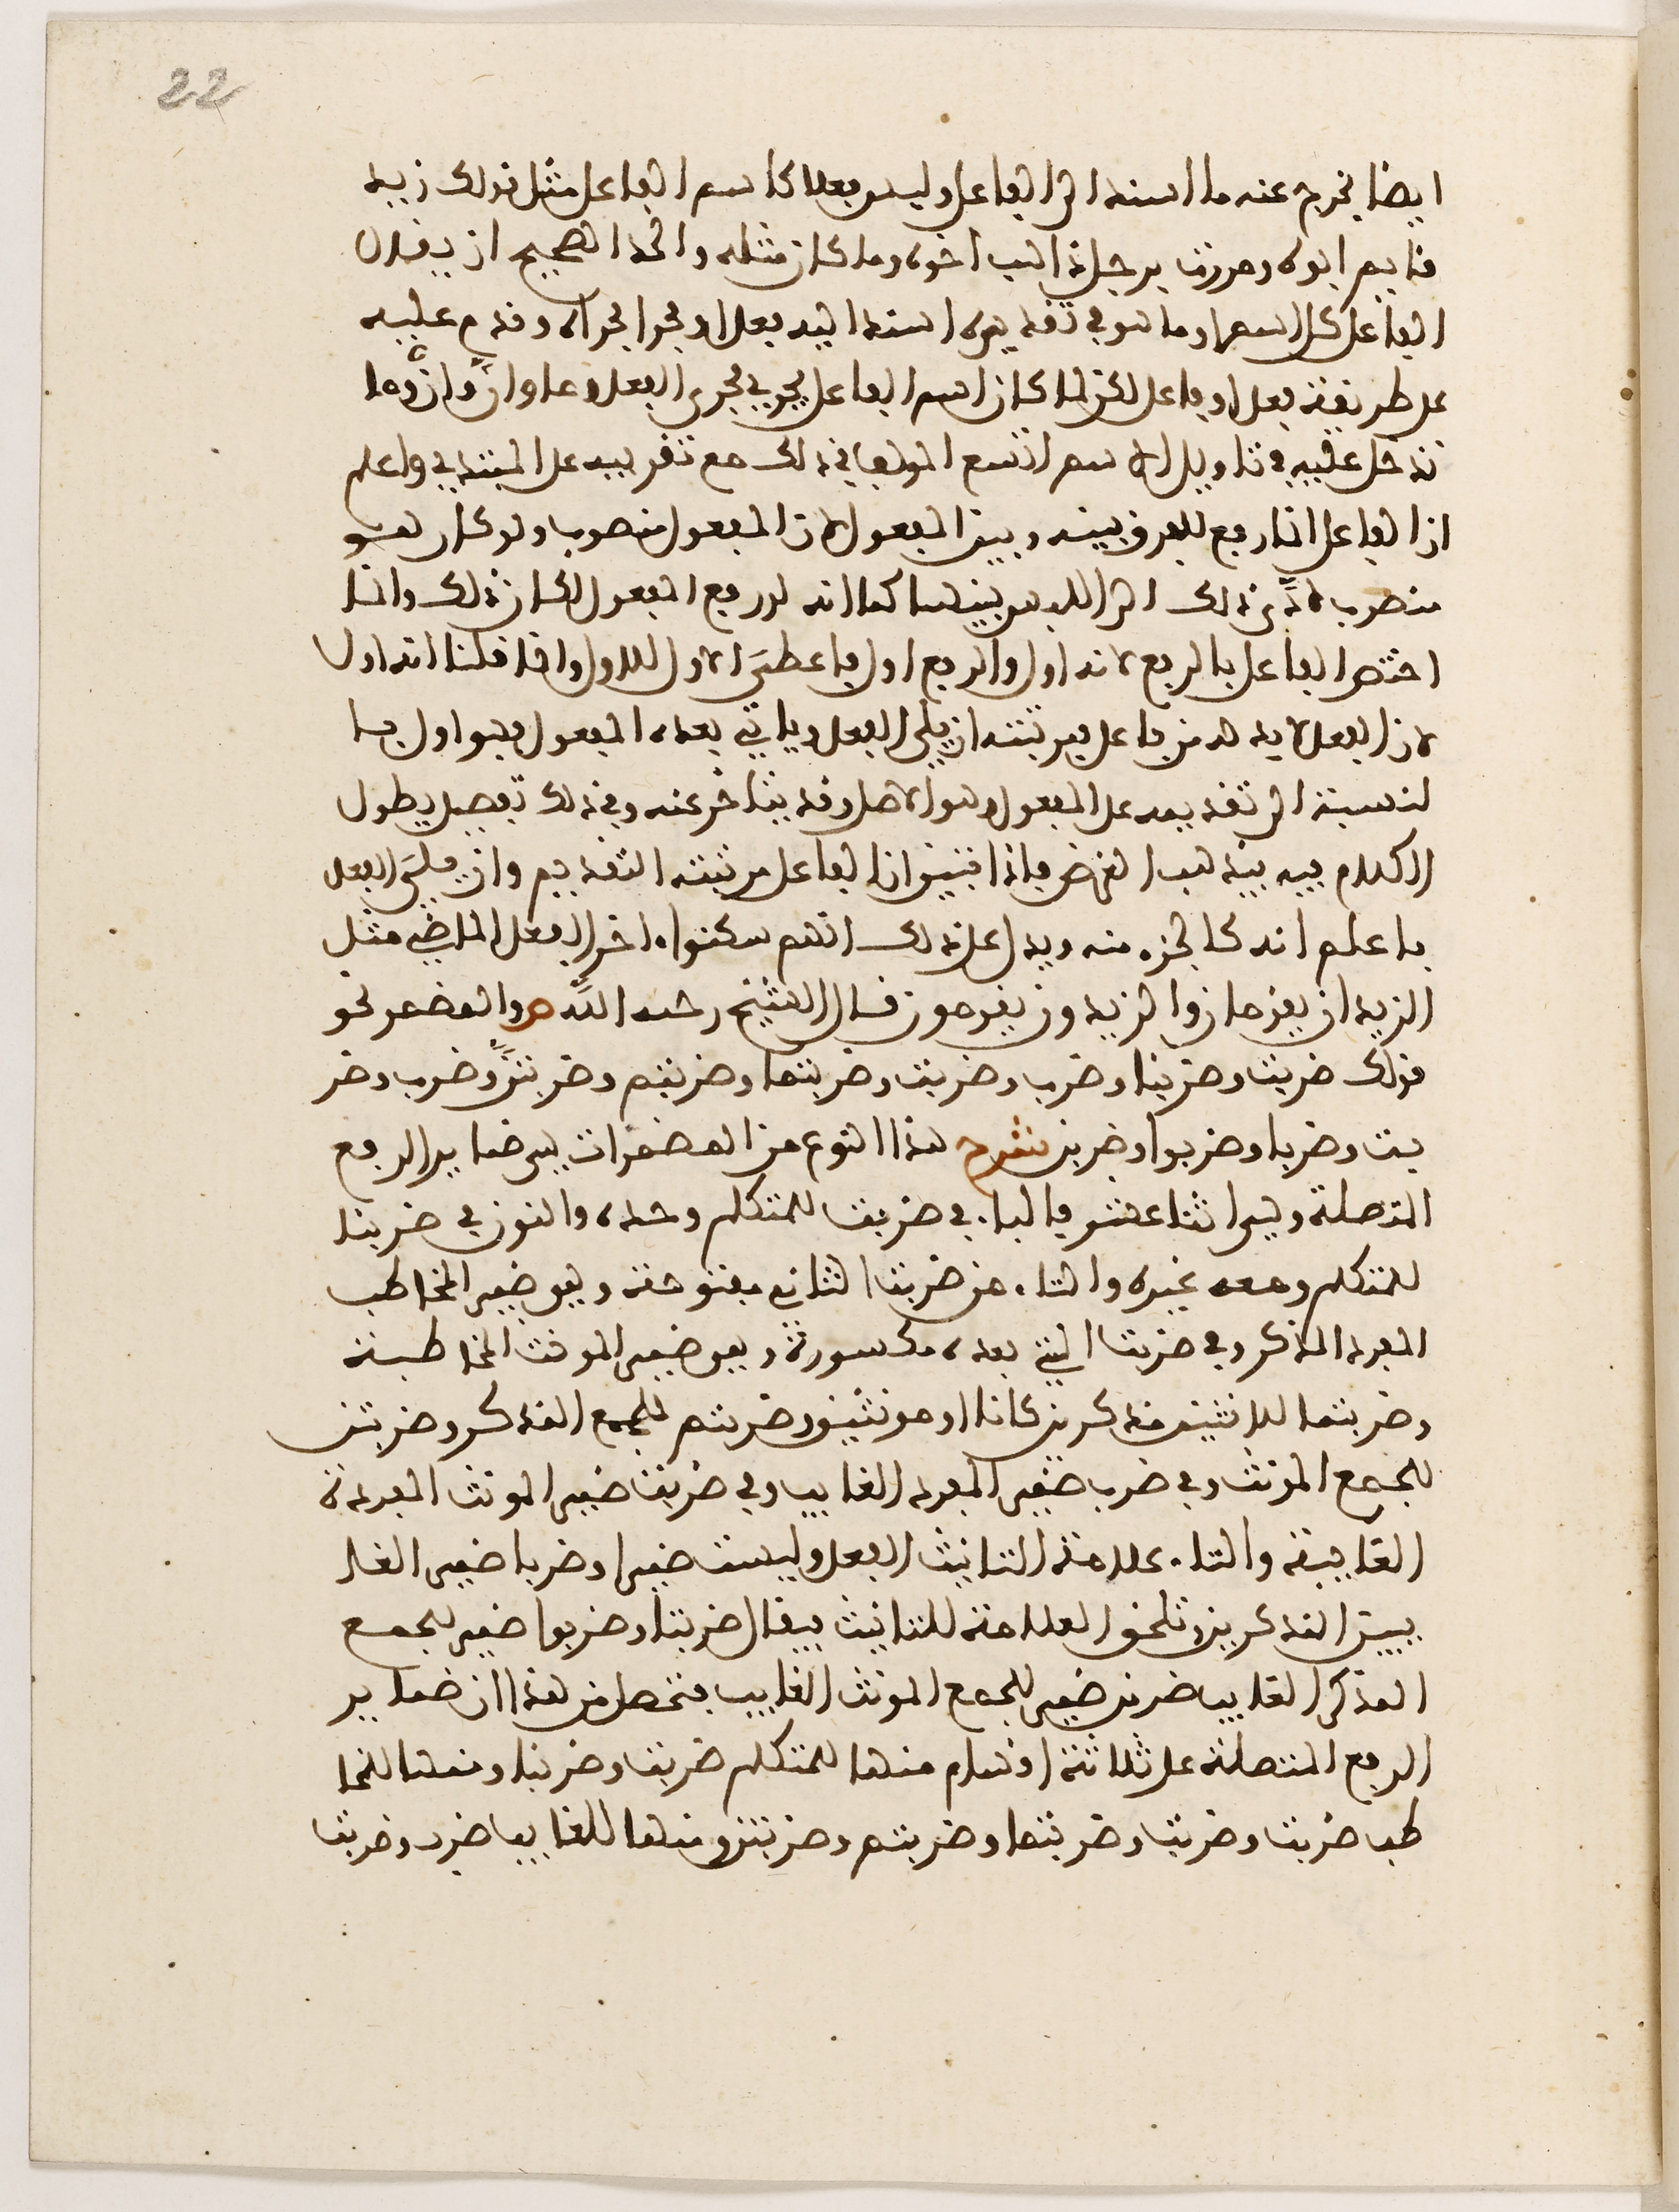 22
ايضا يخرج عنه ما اسند الى الفاعل وليس بفعل كاسم الفاعل مثل قولك زيد
قايم ابوه ومررت برجل ذاهب اخوه وما كان مثله والحد الصحيح ان يقول
الفاعل كل اسم او ما هو في تقديره اسند اليه فعل او جرا مجراه وقدم عليه
على طريقة فعل او فاعل لكن لما كان اسم الفاعل يجري مجرى الفعل وعلى وانّ وان وما
تدخل عليه في تاويل الاسم اتسع المولف في ذلك مع تقريبه على المبتدي واعلم
ان الفاعل انما رفع للفرق بينه وبين المفعول لان المفعول منصوب ولو كان هو
منصوب لادّى ذلك الى اللبس بينهما كما انه لو رفع المفعول لكان ذلك وانما
اختص الفاعل بالرفع لانه اول والرفع اول فاعطي الاول للاول وانما قلنا انه اول
لان الفعل لا بد له من فاعل فمرتبته ان يلي الفعل وياتي بعده المفعول فهو اول بما
لنسبة الى تقديمه على المفعول وهو الاصل وقد يتاخر عنه وفي ذلك تفصيل يطول
الكلام فيه فيذهب الغرض فاذا تبين ان الفاعل مرتبته التقديم وان يلي الفعل
فاعلم انه كالجزء منه ويدل على ذلك انهم سكنوا اخر الفعل الماضي مثل
الزيدان يقومان والزيدون يقومون قال الشيخ رحمه الله ص والمضمر نحو
قولك ضربت وضربنا وضرب وضربت وضربتما وضربتم وضربتنّ وضرب وضر
بت وضربا وضربوا وضربن شرح هذا النوع من المضمرات هي ضماير الرفع
المتصلة وهي اثنا عشر فالتاء في ضربت للمتكلم وحده والنون في ضربنا
للمتكلم ومعه غيره والتاء من ضربت الثاني مفتوحة وهو ضمير المخاطب
المفرد المذكر وفي ضربت التي بعده مكسورة وهو ضمير المونث المخاطبة
وضربتما للاثنين مذكرين كانا او مونثين وضربتم للجمع المذكر وضربتن
للجمع المونث وفي ضرب ضمير المفرد الغايب وفي ضربت ضمير المونث المفردة
الغايبة والتاء علامة التانيث الفعل وليست ضمير وضربا ضمير الغا
يبين المذكرين وتلحق العلامة للتانيث فيقال ضربتا وضربوا ضمير للجمع
المذكر الغايب ضربن ضمير للجمع المونث الغايب فتحصل من هذا ان ضماير
الرفع المتصلة على ثلاثة اقسام منها للمتكلم ضربت وضربنا ومنها للمخا
طب ضربت وضربت وضربتما وضربتم وضربتن ومنها للغايب ضرب وضربت